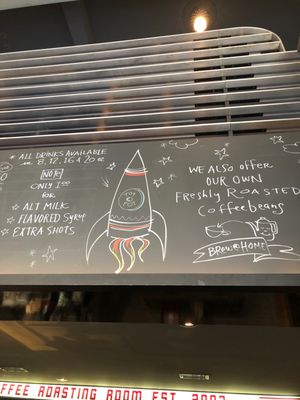 * ALL DRINKS AVAILABLE
in 8, 12, 16 & 20 oz
NOTE
ONLY 1.00
for
* ALT MILK
* FLAVORED Syrup
* EXTRA SHOTS
WE ALSO offer
OUR OWN
Freshly ROASTED
Coffeebeans
BREW@HOME
FFEE ROASTING ROOM EST. 2003